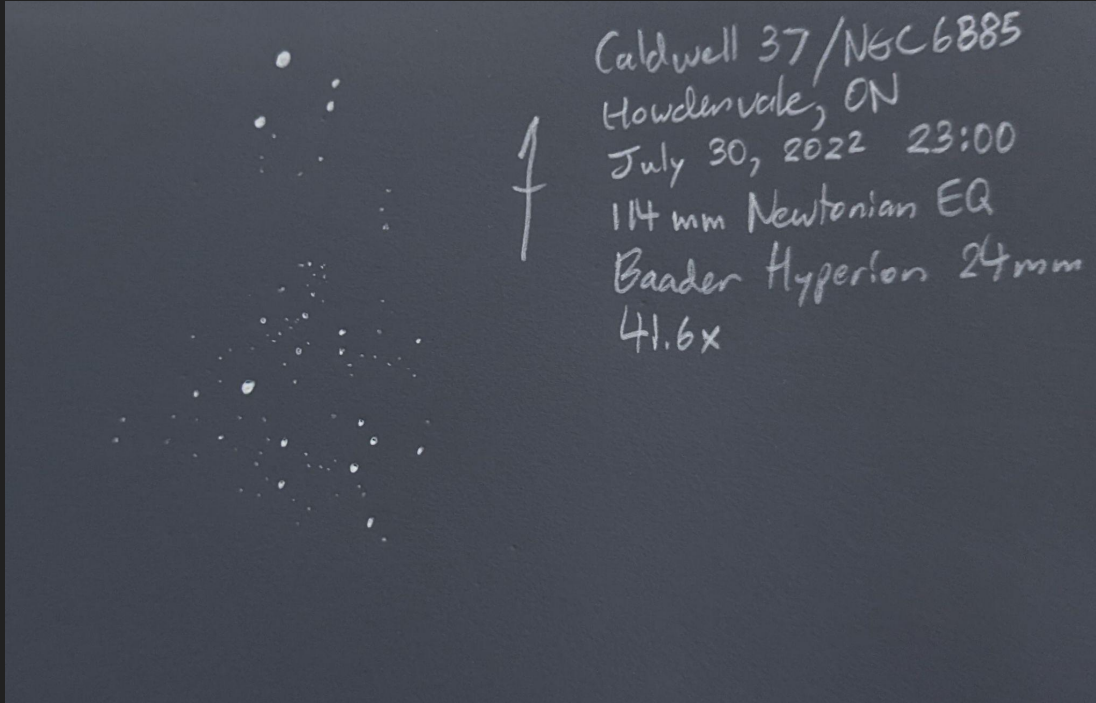 Caldwell 37/NGC6885
Howdenvale, ON
July 30, 2022 23:00
114mm Newtonian EQ
Baader Hyperion 24mm
41.6x